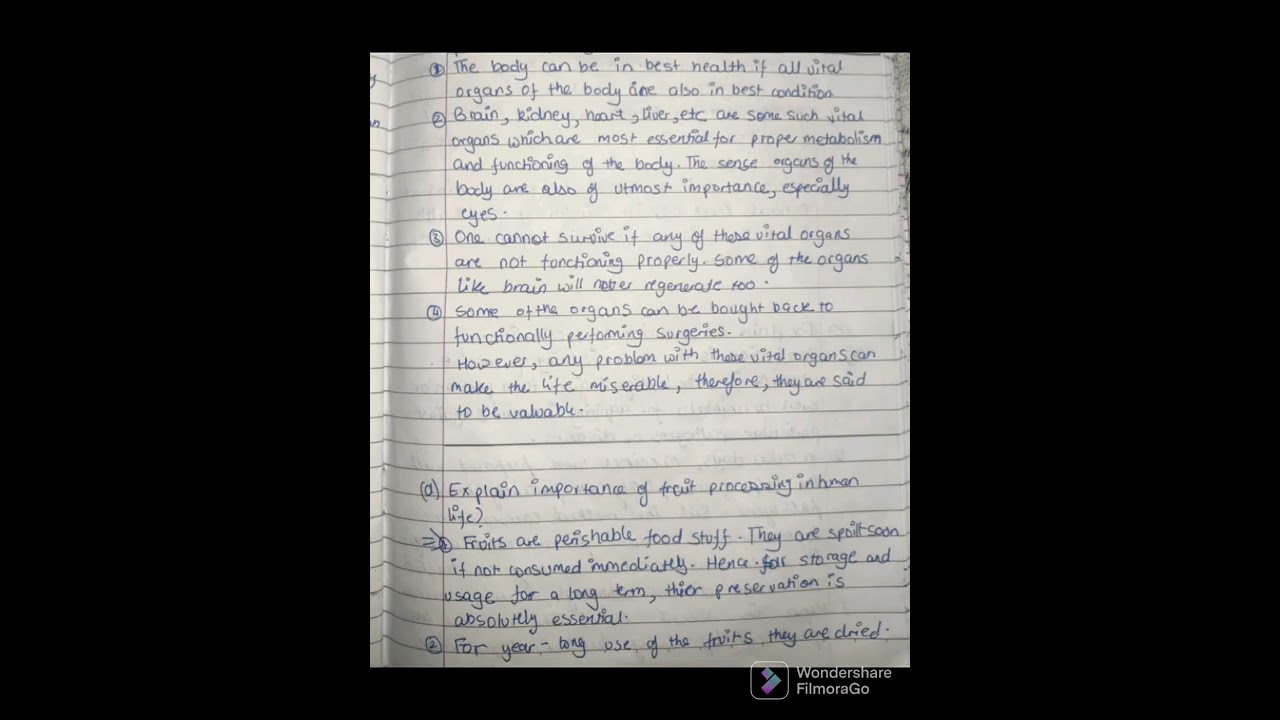 ① The body can be in best health if all vital
organs of the body are also in best condition
② Brain, kidney, heart, liver, etc are some such vital
organs which are most essential for proper metabolism
and functioning of the body. The sense organs of the
body are also of utmost importance, especially
eyes.
③ One cannot survive if any of these vital organs
are not fonctioning properly. Some of the organs
like brain will never regenerate too.
④ Some of the organs can be bought back to
functionally performing surgeries.
However, any problem with these vital organs can
make the life miserable, therefore, they are said
to be valuable.
(d) Explain importance of fruit processing in human
life?
⇒ ① Fruits are perishable food stuff. They are spoilt soon
if not consumed immediately. Hence for storage and
usage for a long term, thier preservation is
absolutely essential.
② For year-long use of the fruits they are dried.
Wondershare
FilmoraGo